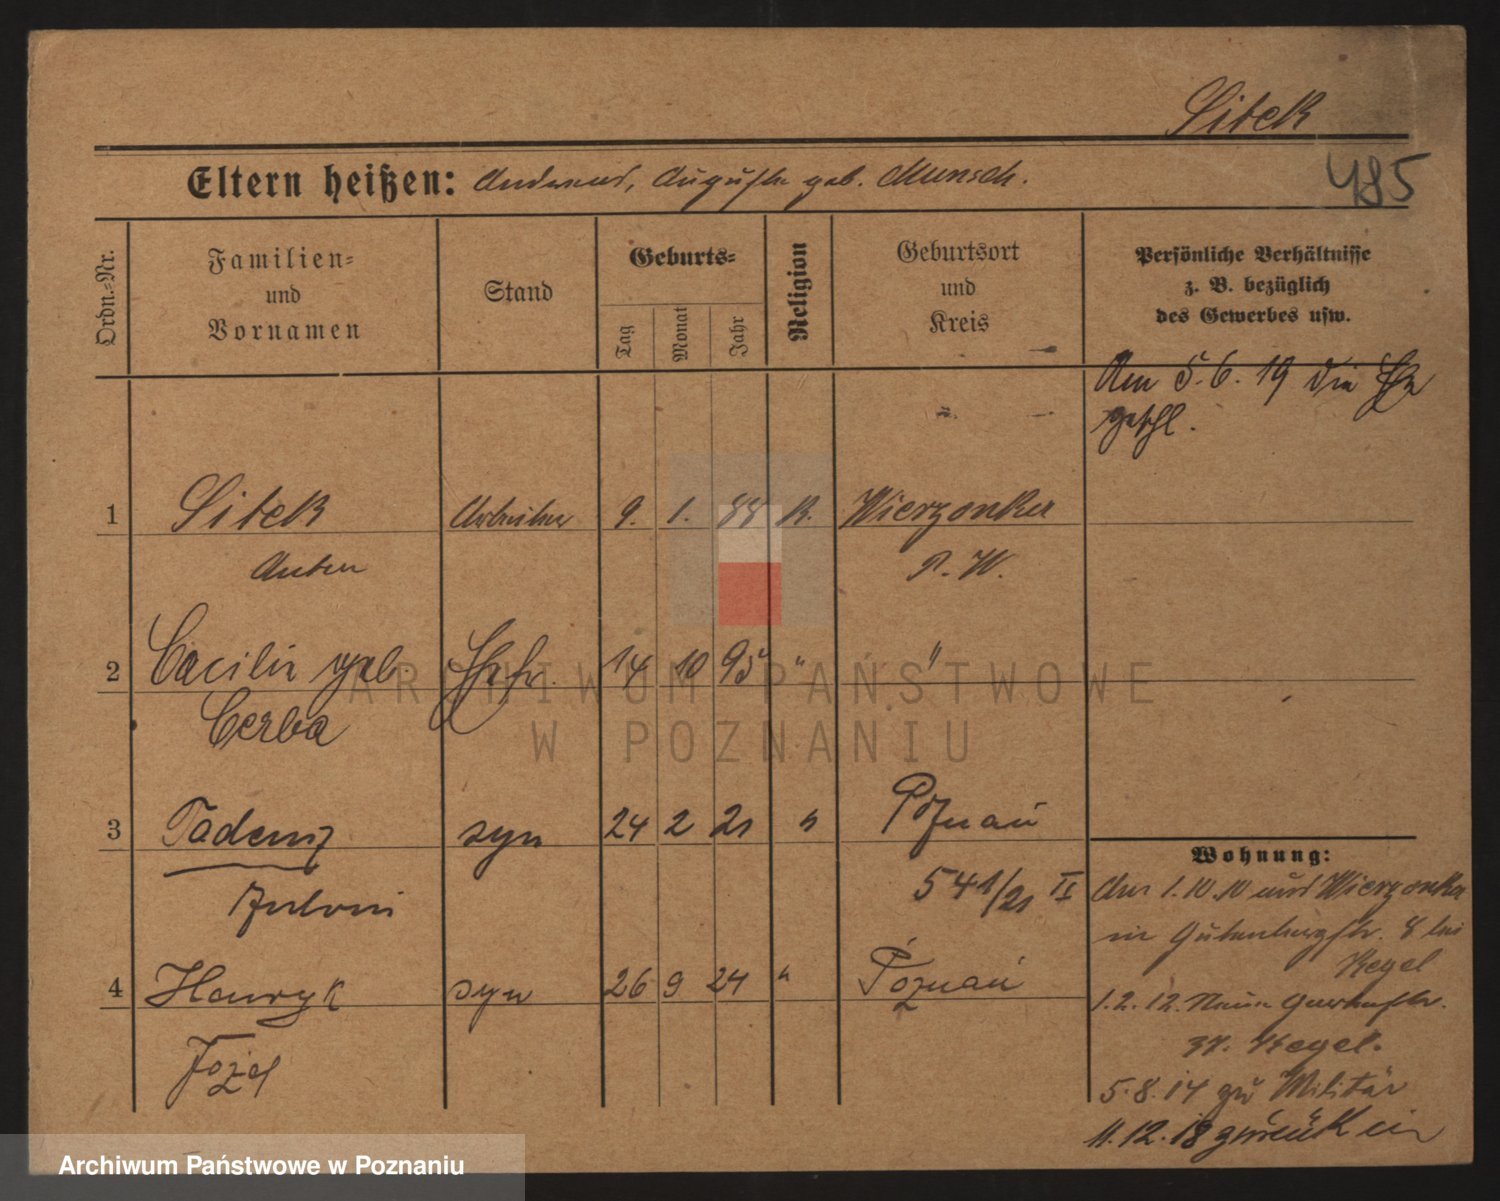 Sitek
485
Eltern heißen: Andreas, Auguste geb. Munsch.
Ordn.-Nr.
Familien- und Vornamen
Stand
Geburts-
Tag
Monat
Jahr
Religion
Geburtsort und Kreis
Persönliche Verhältnisse
z. B. bezüglich
des Gewerbes usw.
Am 5.6.19 die Ehe
geschl.
1 Sitek Arbeiter 9. 1. 88 K. Wierzonka
Anton P. W.
2 Cäcilie geb. Ehefr. 14 10 95 " "
Cerba
3 Tadeusz syn 24 2 21 " Poznań
Antoni 541/21 II
4 Henryk syn 26 9 24 " Poznań
Józef
Wohnung:
Am 1.10.10 aus Wierzonka
in Gutenbergstr. 8 bei
Kegel
1.2.12. Neue
Kegel.
5.8.14 zu Militär
11.12.18 zurück in
ARCHIWUM PAŃSTWOWE
W POZNANIU
Archiwum Państwowe w Poznaniu